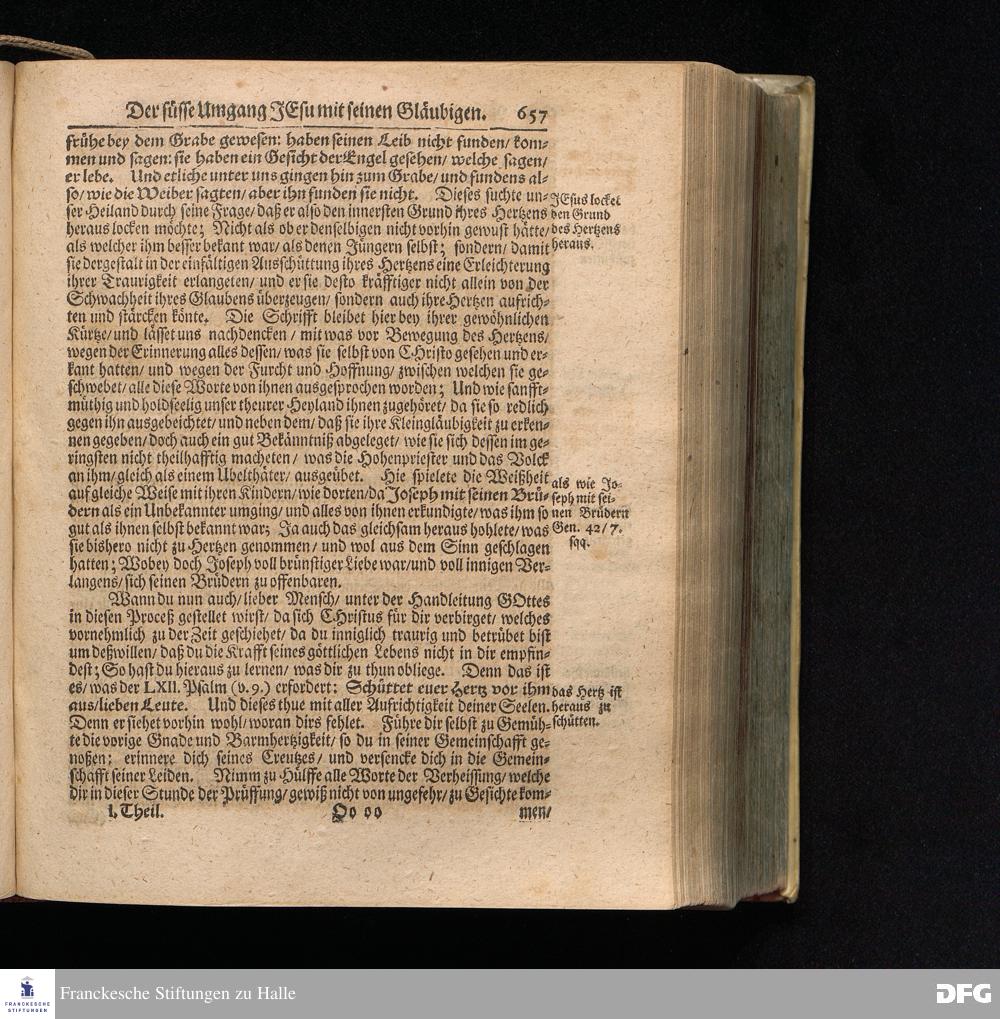 Der süsse Umgang JEsu mit seinen Gläubigen. 657
frühe bey dem Grabe gewesen: haben seinen Leib nicht funden/ kom-
men und sagen: sie haben ein Gesicht der Engel gesehen/ welche sagen/
er lebe. Und etliche unter uns gingen hin zum Grabe/ und fundens al-
so/ wie die Weiber sagten/ aber ihn funden sie nicht. Dieses suchte un-
ser Heiland durch seine Frage/ daß er also den innersten Grund ihres Hertzens
heraus locken möchte; Nicht als ob er denselbigen nicht vorhin gewust hätte/
als welcher ihm besser bekant war/ als denen Jüngern selbst; sondern/ damit
sie dergestalt in der einfältigen Ausschüttung ihres Hertzens eine Erleichterung
ihrer Traurigkeit erlangeten/ und er sie desto kräfftiger nicht allein von der
Schwachheit ihres Glaubens überzeugen/ sondern auch ihre Hertzen aufrich-
ten und stärcken könte. Die Schrifft bleibet hier bey ihrer gewöhnlichen
Kürtze/ und lässet uns nachdencken/ mit was vor Bewegung des Hertzens/
wegen der Erinnerung alles dessen/ was sie selbst von CHristo gesehen und er-
kant hatten/ und wegen der Furcht und Hoffnung/ zwischen welchen sie ge-
schwebet/ alle diese Worte von ihnen ausgesprochen worden; Und wie sanfft-
müthig und holdseelig unser theurer Heyland ihnen zugehöret/ da sie so redlich
gegen ihn ausgebeichtet/ und neben dem/ daß sie ihre Kleingläubigkeit zu erken-
nen gegeben/ doch auch ein gut Bekänntniß abgeleget/ wie sie sich dessen im ge-
ringsten nicht theilhafftig macheten/ was die Hohenpriester und das Volck
an ihm/ gleich als einem Ubelthäter/ ausgeübet. Hie spielete die Weißheit
auf gleiche Weise mit ihren Kindern/ wie dorten/ da Joseph mit seinen Brü-
dern als ein Unbekannter umging/ und alles von ihnen erkundigte/ was ihm so
gut als ihnen selbst bekannt war; Ja auch das gleichsam heraus hohlete/ was
sie bishero nicht zu Hertzen genommen/ und wol aus dem Sinn geschlagen
hatten; Wobey doch Joseph voll brünstiger Liebe war/ und voll innigen Ver-
langens/ sich seinen Brüdern zu offenbaren.
Wann du nun auch/ lieber Mensch/ unter der Handleitung GOttes
in diesen Proceß gestellet wirst/ da sich CHristus für dir verbirget/ welches
vornehmlich zu der Zeit geschiehet/ da du inniglich traurig und betrübet bist
um deßwillen/ daß du die Krafft seines göttlichen Lebens nicht in dir empfin-
dest; So hast du hieraus zu lernen/ was dir zu thun obliege. Denn das ist
es/ was der LXII. Psalm (v. 9.) erfordert: Schüttet euer Hertz vor ihm
aus/ lieben Leute. Und dieses thue mit aller Aufrichtigkeit deiner Seelen.
Denn er siehet vorhin wohl/ woran dirs fehlet. Führe dir selbst zu Gemüh-
te die vorige Gnade und Barmhertzigkeit/ so du in seiner Gemeinschafft ge-
noßen; erinnere dich seines Creutzes/ und versencke dich in die Gemein-
schafft seiner Leiden. Nimm zu Hülffe alle Worte der Verheissung/ welche
dir in dieser Stunde der Prüffung/ gewiß nicht von ungefehr/ zu Gesichte kom-
I. Theil. Oo oo men/
JEsus locket
den Grund
des Hertzens
heraus.
als wie Jo-
seph mit sei-
nen Brüdern
Gen. 42/ 7.
sqq.
das Hertz ist
heraus zu
schütten.
FRANCKESCHE
STIFTUNGEN
Franckesche Stiftungen zu Halle
DFG